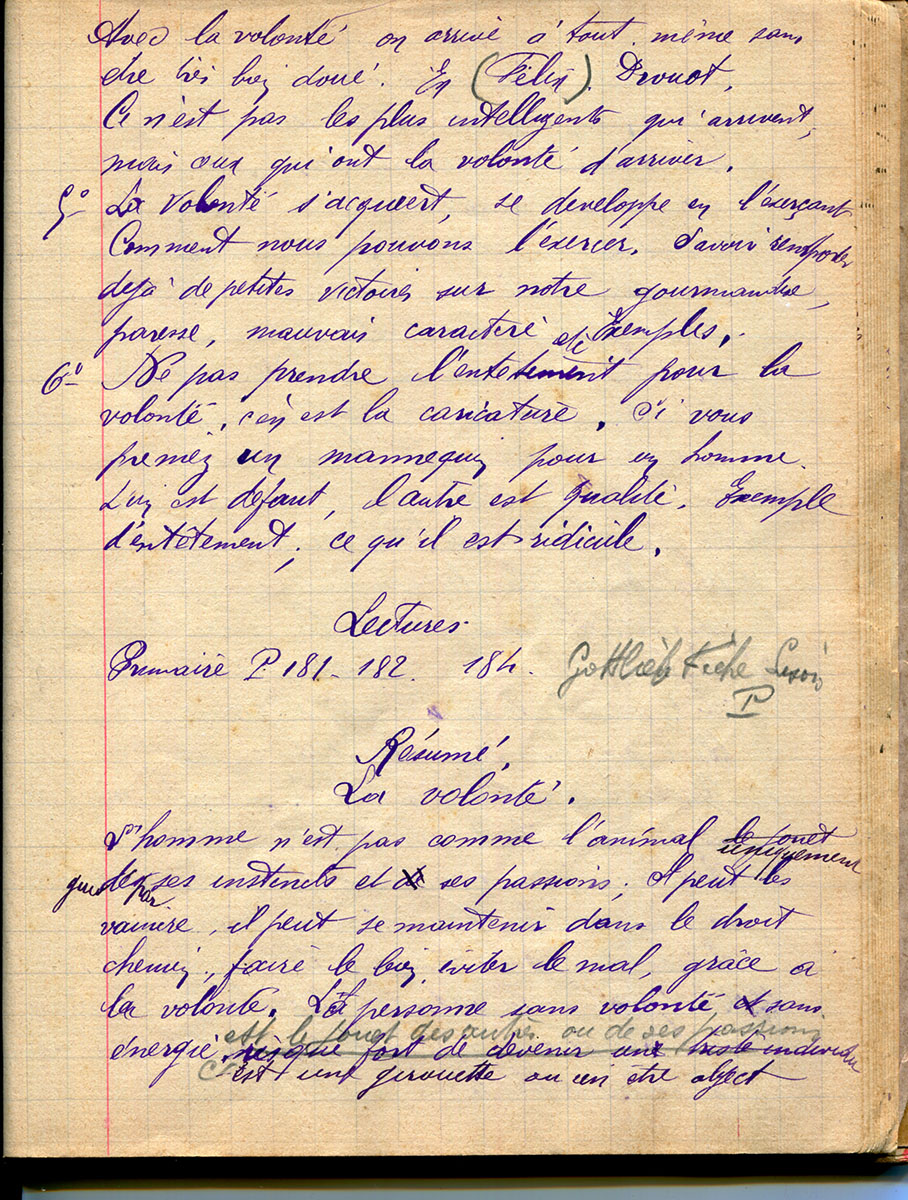 Avec la volonté on arrive à tout même sans
être très bien doué. Ex (Félix). Drouot,
Ce n'est pas les plus intelligents qui arrivent,
mais ceux qui ont la volonté d'arriver.
5° La Volonté s'acquiert, se developpe en l'exerçant
Comment nous pouvons l'exercer. Savoir remporter
dejà de petites victoires sur notre gourmandise,
paresse, mauvais caractère etc Exemples.
6° Ne pas prendre l'entetement pour la
volonté, c'en est la caricature. Si vous
prenez un mannequin pour un homme.
L'un est défaut, l'autre est qualité. Exemple
d'entêtement, ce qu'il est ridicule.
Lectures
Primaire P 181-182 184. Gottlieb
P
Résumé.
La volonté.
L'homme n'est pas comme l'animal le jouet uniquement
guidé par des ses instincts et de ses passions; Il peut les
vaincre, il peut se maintenir dans le droit
chemin, faire le bien, éviter le mal, grâce à
la volonté. La personne sans volonté et sans
est le jouet des autres ou de ses passions
énergie, risque fort de devenir un triste individu
c'est une girouette ou un être abject